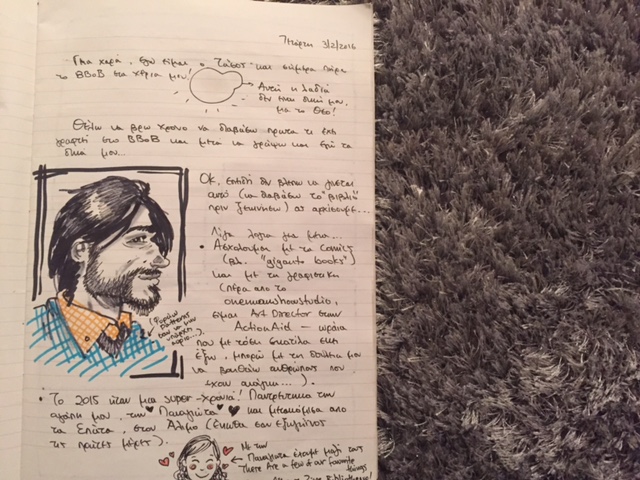 Πέμπτη 3/2/2016
Γεια χαρά, εγώ είμαι ο Τάσος και σήμερα πήρα
το BBoB στα χέρια μου!
Αυτή η λαδιά
δεν είναι δική μου,
μα το Θεό!
Θέλω να βρω χρόνο να διαβάσω πρώτα τι έχει
γραφτεί στο BBoB και μετά να γράψω και εγώ τα
δικά μου...
OK, επειδή δεν βλέπω να γίνεται
αυτό (να διαβάσω το "βιβλίο"
πριν ξεκινήσω) ας αρχίσουμε...
Λίγα λόγια για μένα...
• Ασχολούμαι με τα comics
(βλ. "giganto books")
και με τη γραφιστική
(πέρα από το
onemanshowstudio,
είμαι Art Director στην
ActionAid – ωραία
που με τόση
έξω, μπορώ με τη δουλειά μου
να βοηθάω ανθρώπους που
έχουν ανάγκη...).
(Φοράω
σαν να μην
υπάρχει
αύριο...)
• Το 2015 ήταν μια super-χρονιά! Παντρεύτηκα την
αγάπη μου, την Παναγιώτα και μετακόμισα από
τα Σπάτα, στον Άλιμο (έκλαψα σαν εξώγαμος
τις πρώτες μέρες).
Με την
Παναγιώτα έχουμε μαζί τους
These are a few of our favorite
things